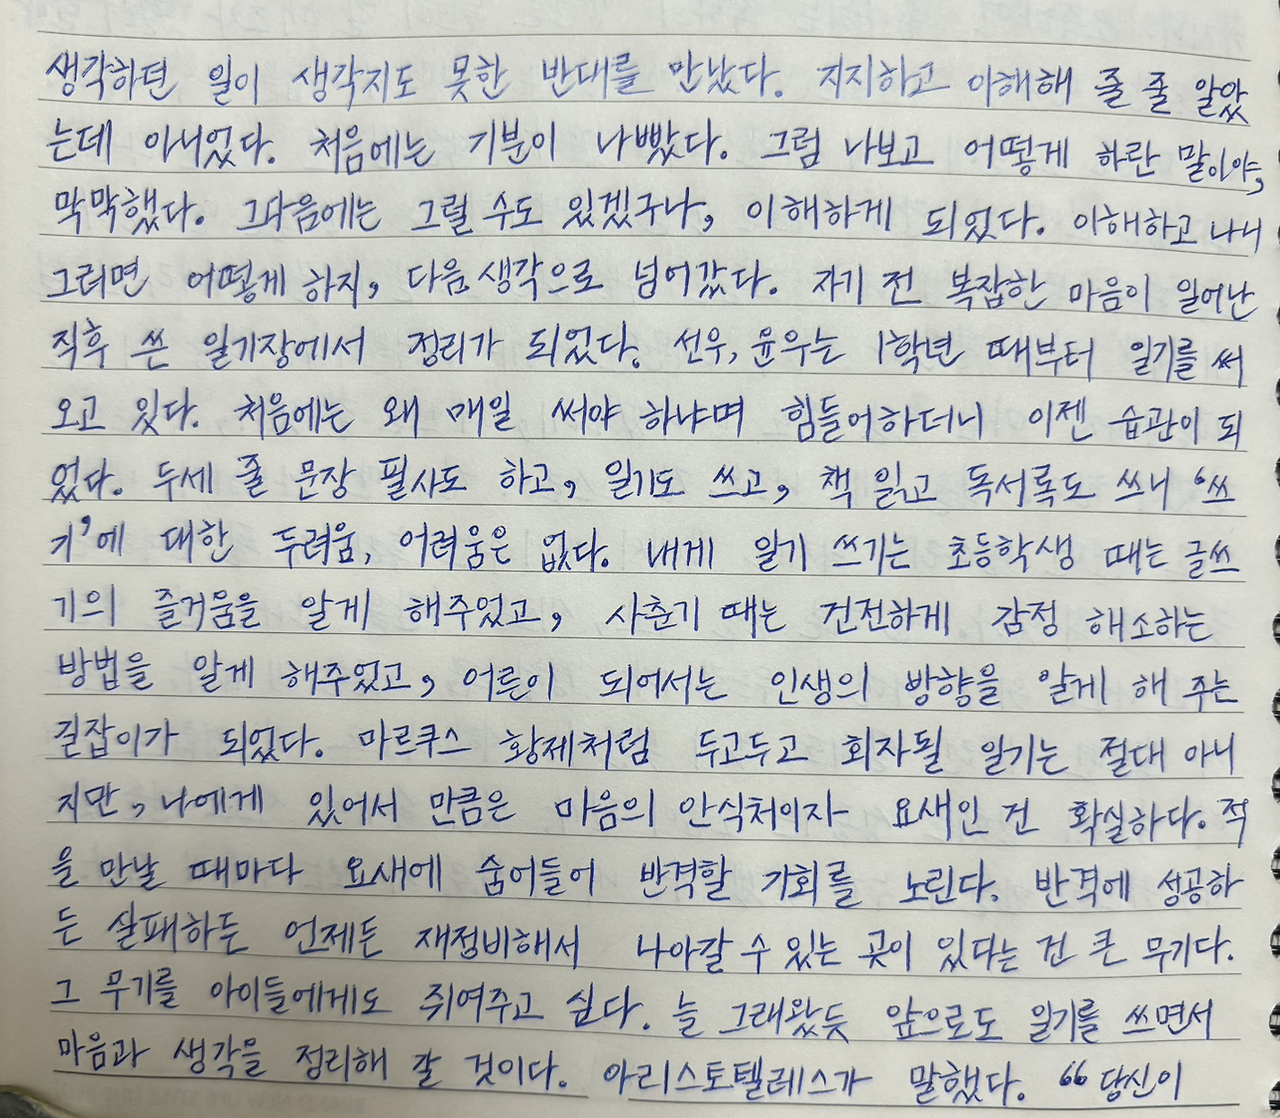 생각하던 일이 생각지도 못한 반대를 만났다. 지지하고 이해해 줄 줄 알았
는데 아니었다. 처음에는 기분이 나빴다. 그럼 나보고 어떻게 하란 말이야,
막막했다. 그다음에는 그럴 수도 있겠구나, 이해하게 되었다. 이해하고 나니
그러면 어떻게 하지, 다음 생각으로 넘어갔다. 자기 전 복잡한 마음이 일어난
직후 쓴 일기장에서 정리가 되었다. 선우, 윤우는 1학년 때부터 일기를 써
오고 있다. 처음에는 왜 매일 써야 하냐며 힘들어하더니 이젠 습관이 되
었다. 두세 줄 문장 필사도 하고, 일기도 쓰고, 책 읽고 독서록도 쓰니 '쓰
기'에 대한 두려움, 어려움은 없다. 내게 일기 쓰기는 초등학생 때는 글쓰
기의 즐거움을 알게 해주었고, 사춘기 때는 건전하게 감정 해소하는
방법을 알게 해주었고, 어른이 되어서는 인생의 방향을 알게 해 주는
길잡이가 되었다. 마르쿠스 황제처럼 두고두고 회자될 일기는 절대 아니
지만, 나에게 있어서 만큼은 마음의 안식처이자 요새인 건 확실하다. 적
을 만날 때마다 요새에 숨어들어 반격할 기회를 노린다. 반격에 성공하
든 실패하든 언제든 재정비해서 나아갈 수 있는 곳이 있다는 건 큰 무기다.
그 무기를 아이들에게도 쥐여주고 싶다. 늘 그래왔듯 앞으로도 일기를 쓰면서
마음과 생각을 정리해 갈 것이다. 아리스토텔레스가 말했다. "당신이